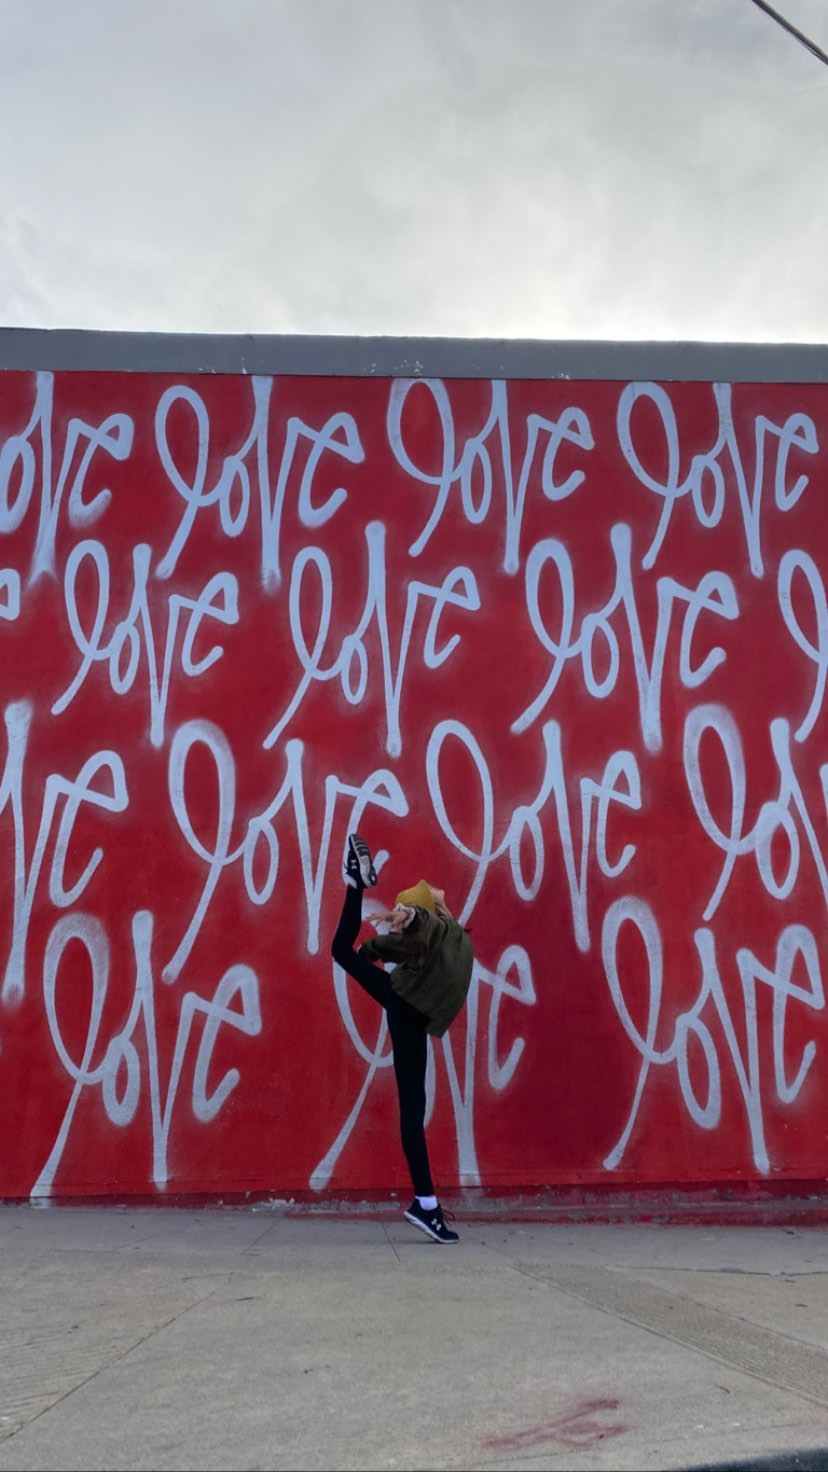 love love love love
love love love
love love love love
love love love